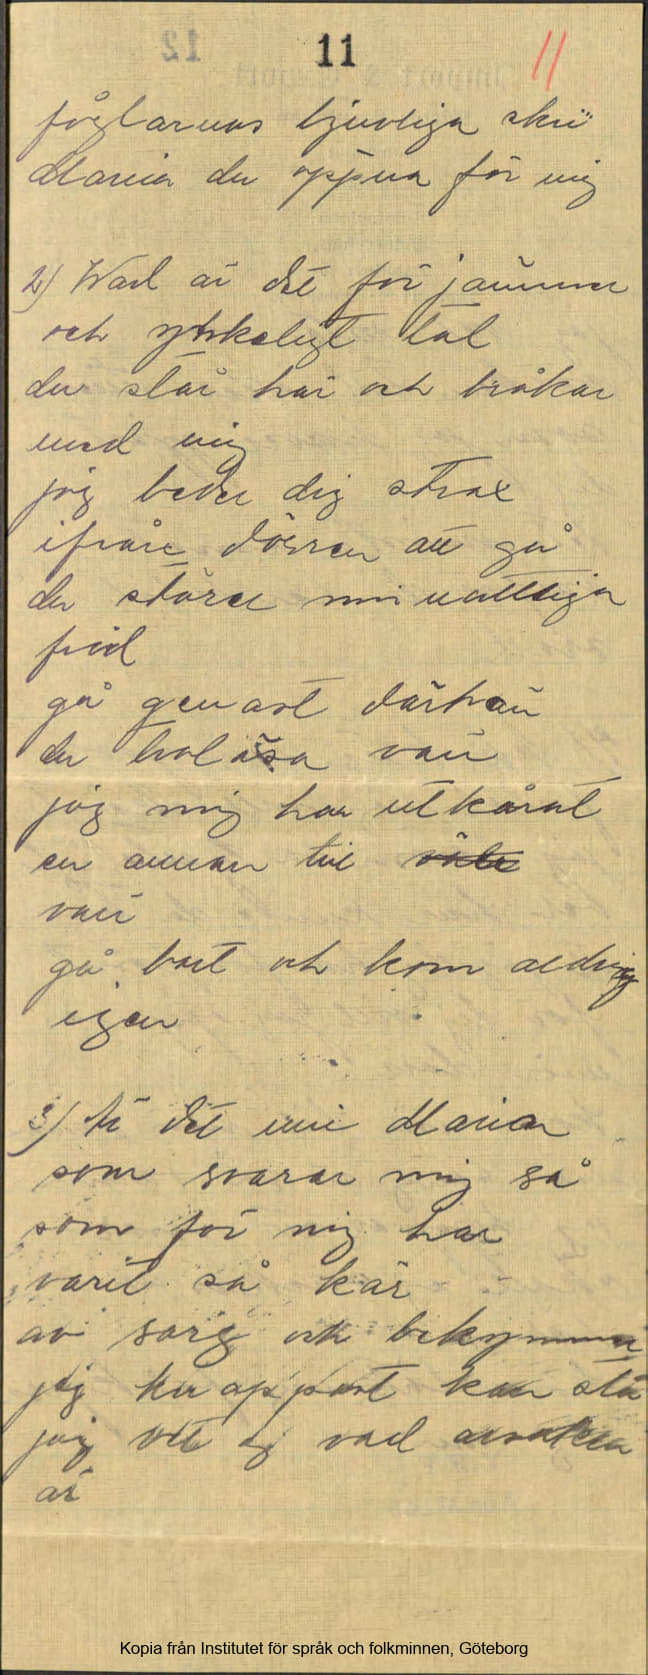 11 11
fåglarnas ljuvliga skri
Maria du öppna för mig
2) Wad är det för jämmer
och ynkeligt tal
du står här och bråkar
med mig
jag beder dig strax
ifrån dörren att gå
du störer min nattliga
frid
gå genast därhän
du trolösa vän
jag mig har utkårat
en annan till
vän
gå bort och kom aldrig
igen
3) Är det min Maria
som svarar mig så
som för mig har
varit så kär
av sorg och bekymmer
jag knappast kan stå
jag vet ej vad orsaken
är
Kopia från Institutet för språk och folkminnen, Göteborg